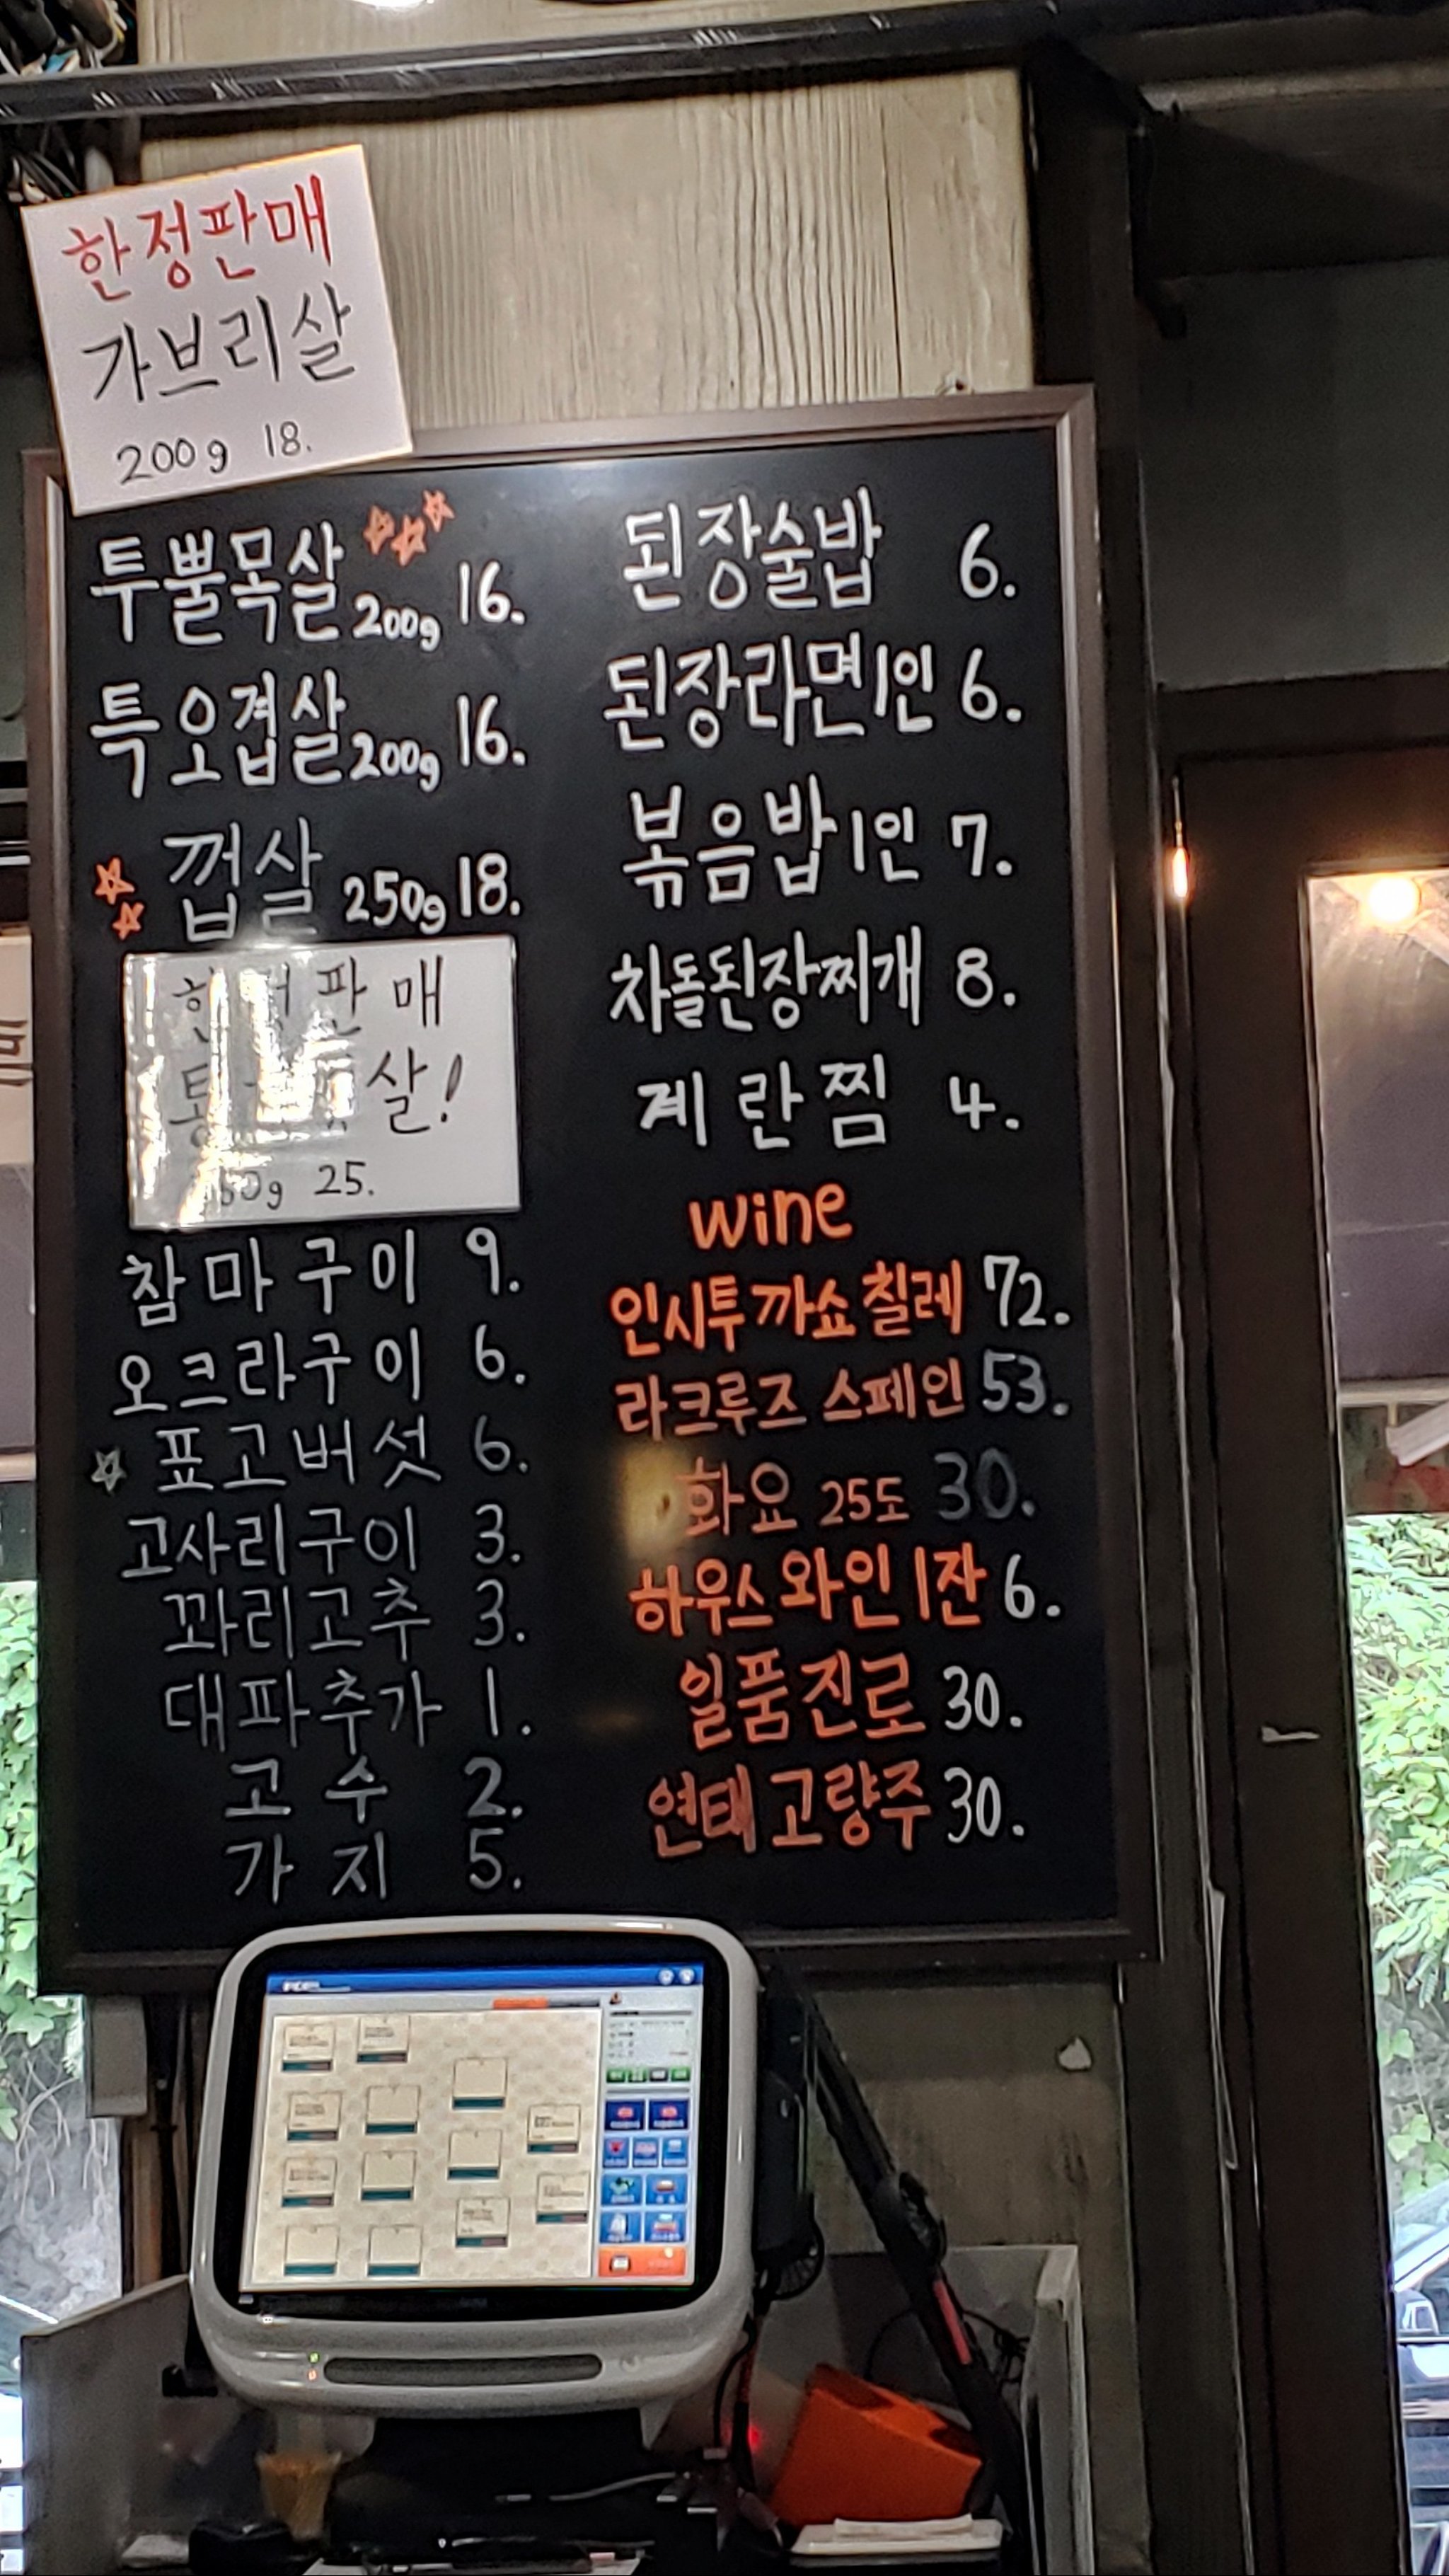 한정판매
가브리살
200g 18.
투뿔목살 200g 16.
특오겹살 200g 16.
껍살 250g 18.
판매
살!
25.
참마구이 9.
오크라구이 6.
표고버섯 6.
고사리구이 3.
꽈리고추 3.
대파추가 1.
고수 2.
가지 5.
된장술밥 6.
된장라면 1인 6.
볶음밥 1인 7.
차돌된장찌개 8.
계란찜 4.
wine
인시투 까쇼 칠레 72.
라크루즈 스페인 53.
화요 25도 30.
하우스 와인 1잔 6.
일품진로 30.
연태고량주 30.